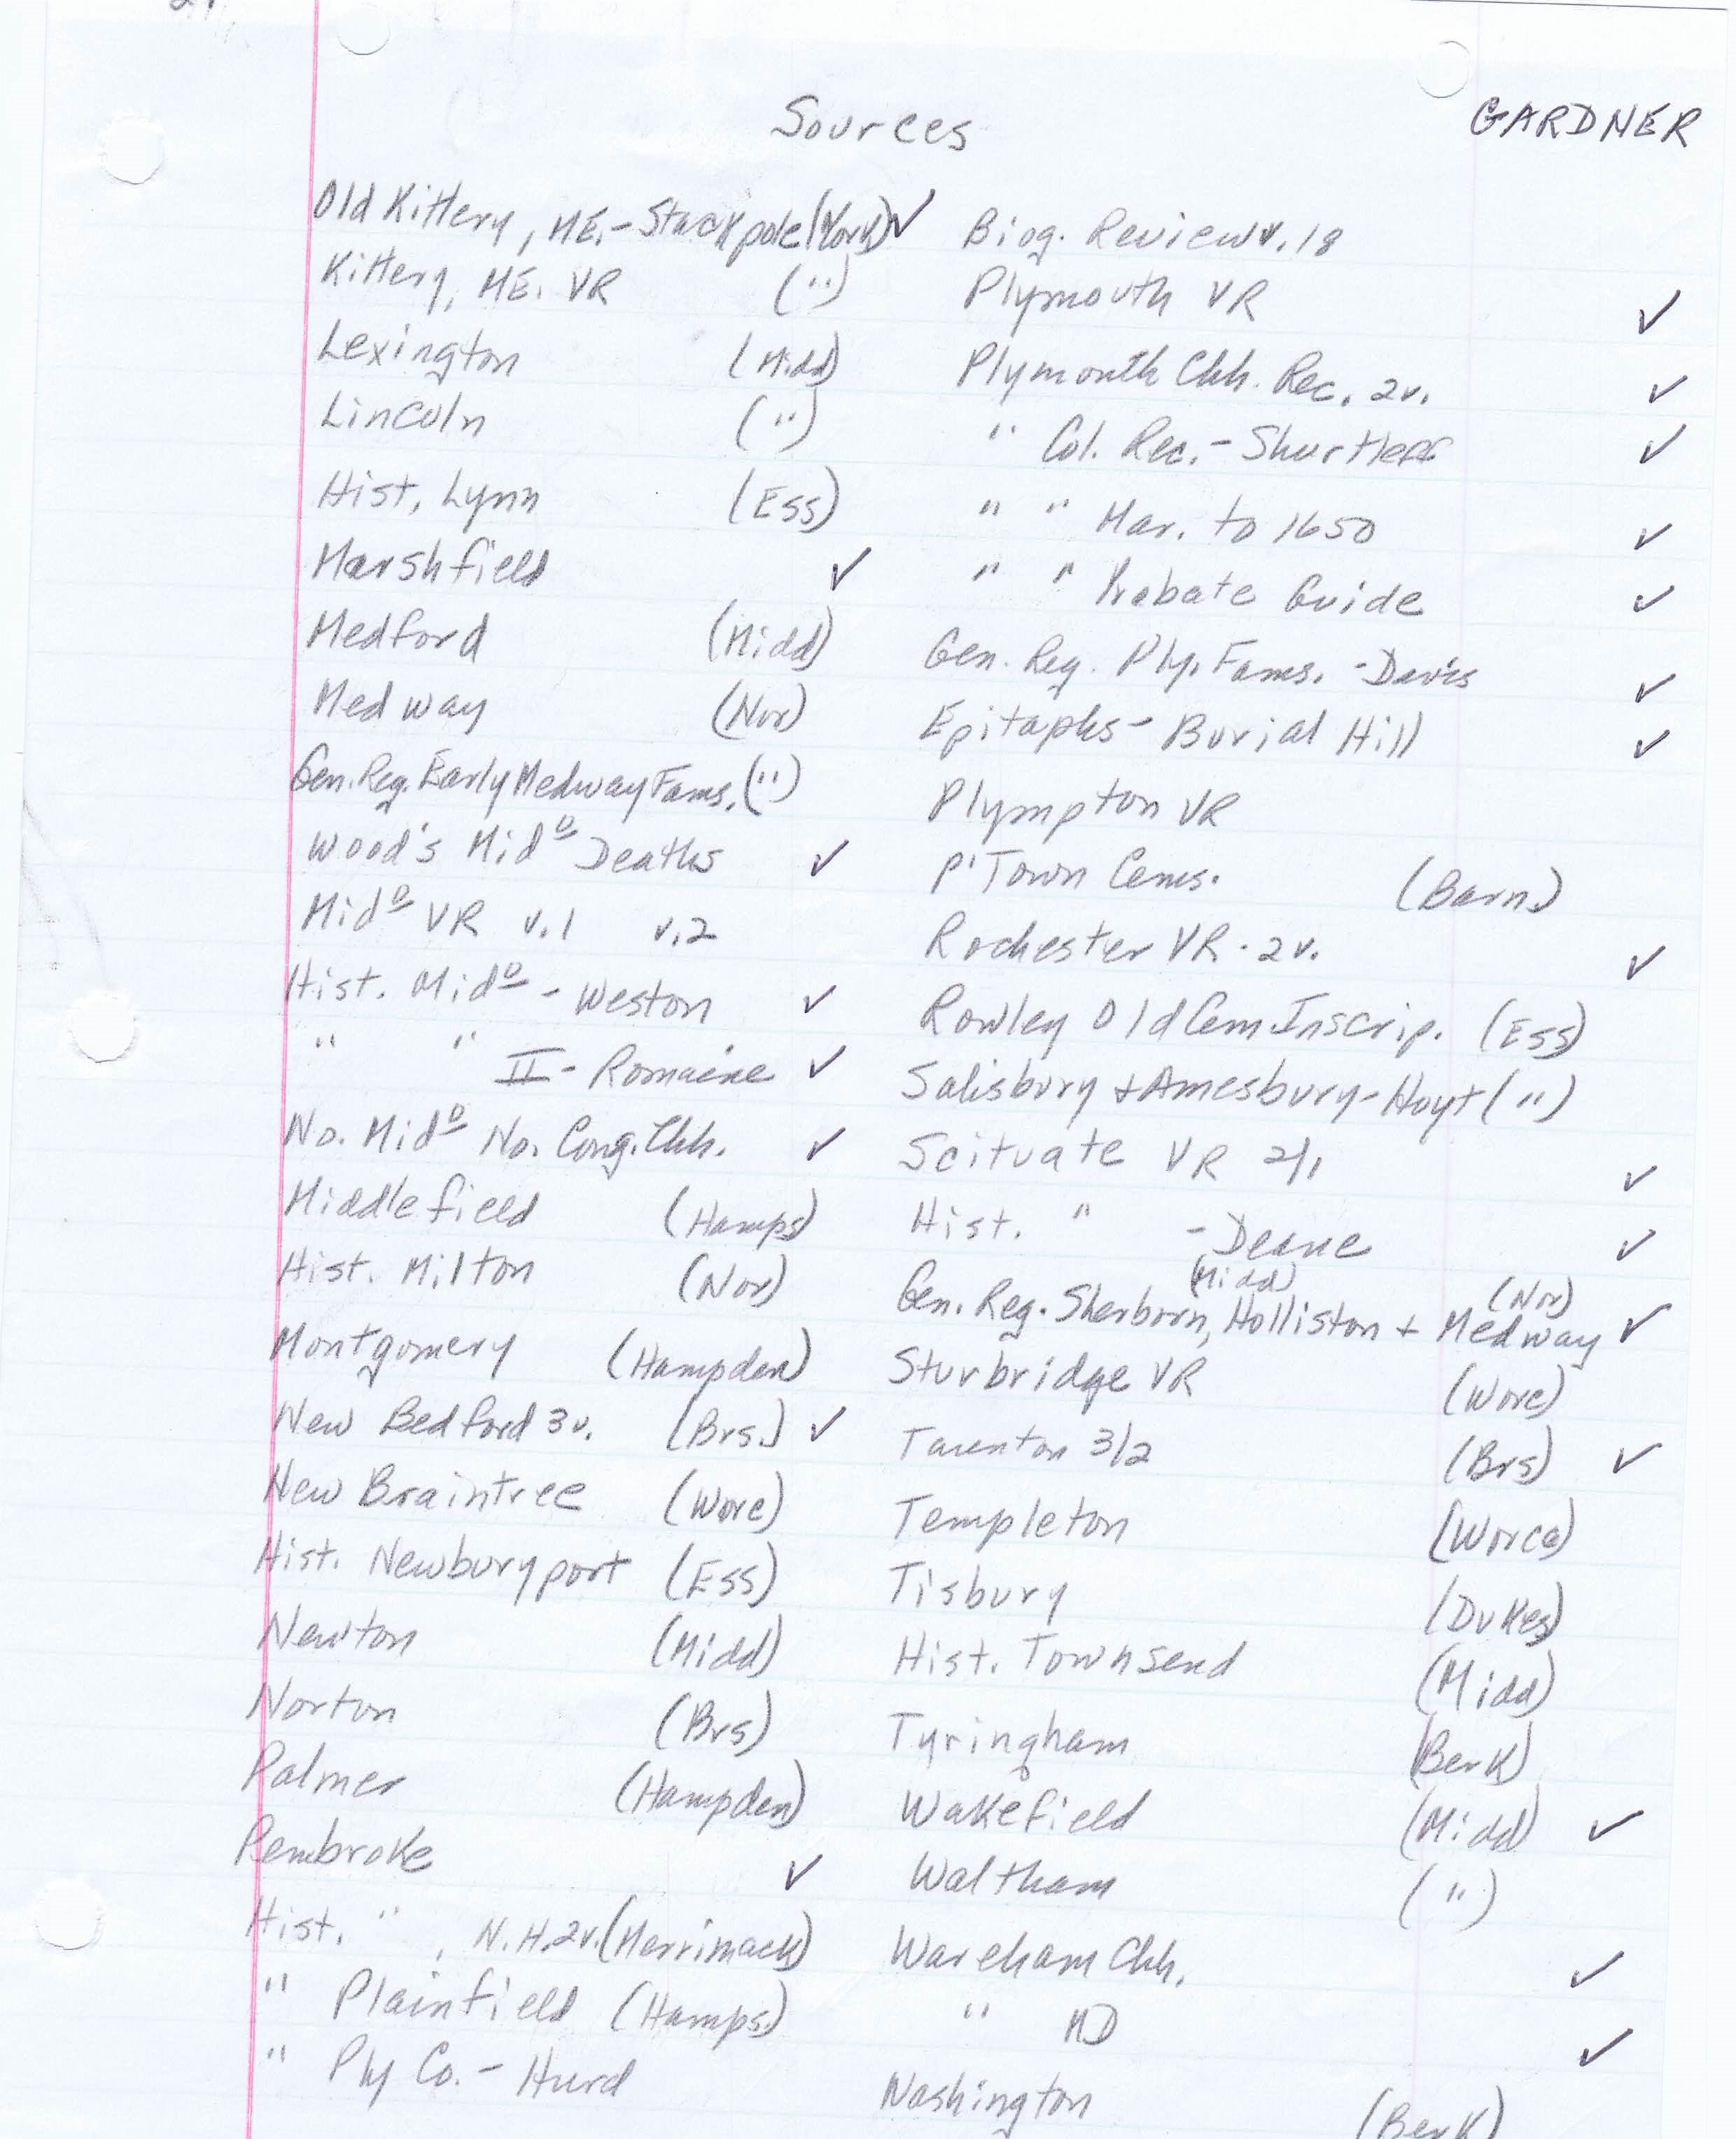 Sources
GARDNER
Old Kittery, ME. - Stackpole (York) ✓
Kittery, ME. VR (")
Lexington (Midd)
Lincoln (")
Hist. Lynn (Ess)
Marshfield ✓
Medford (Midd)
Medway (Nor)
Gen. Reg. Early Medway Fams. (")
Wood's Midº Deaths ✓
Midº VR v.1 v.2
Hist. Midº - Weston ✓
" " II - Romaine ✓
No. Midº No. Cong. Chh. ✓
Middlefield (Hamps)
Hist. Milton (Nor)
Montgomery (Hampden)
New Bedford 3v. (Brs.) ✓
New Braintree (Worc)
Hist. Newburyport (Ess)
Newton (Midd)
Norton (Brs)
Palmer (Hampden)
Pembroke ✓
Hist. " , N.H. 2v. (Merrimack)
" Plainfield (Hamps.)
" Ply Co. - Hurd
Biog. Review v. 18
Plymouth VR ✓
Plymouth Chh. Rec. 2v. ✓
" Col. Rec. - Shurtleff ✓
" " Mar. to 1650 ✓
" " Probate Guide ✓
Gen. Reg. Ply. Fams. - Davis ✓
Epitaphs - Burial Hill ✓
Plympton VR
P'Town Cems. (Barn)
Rochester VR - 2v. ✓
Rowley Old Cem Inscrip. (Ess)
Salisbury + Amesbury - Hoyt (")
Scituate VR 2/1 ✓
Hist. " - Deane ✓
(Midd) (Nor)
Gen. Reg. Sherborn, Holliston + Medway ✓
Sturbridge VR (Worc)
Taunton 3/2 (Brs) ✓
Templeton (Worce)
Tisbury (Dukes)
Hist. Townsend (Midd)
Tyringham (Berk)
Wakefield (Midd) ✓
Waltham (")
Wareham Chh. ✓
" ✓
Washington (Berk)